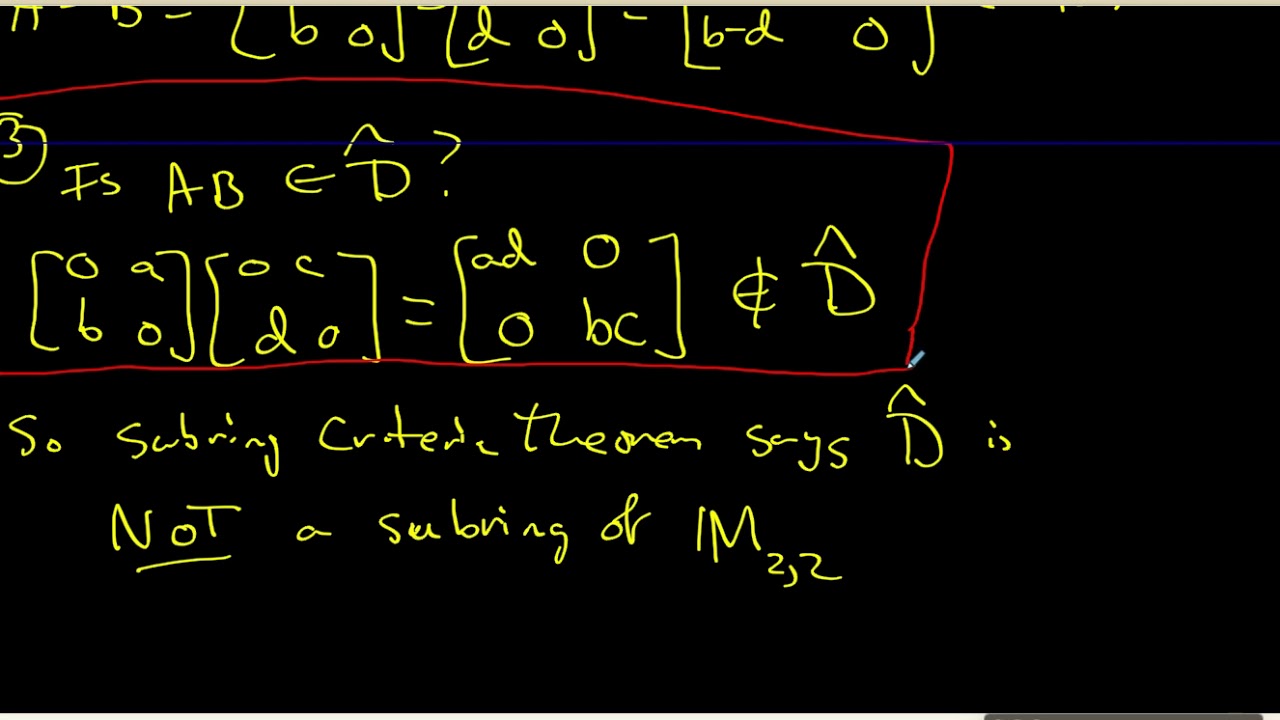 A - B = [b 0] - [d 0] = [b-d 0]
③ Is AB ∈ D̂ ?
[0 a; b 0] [0 c; d 0] = [ad 0; 0 bc] ∉ D̂
So subring Criteria theorem says D̂ is
NOT a subring of M₂,₂